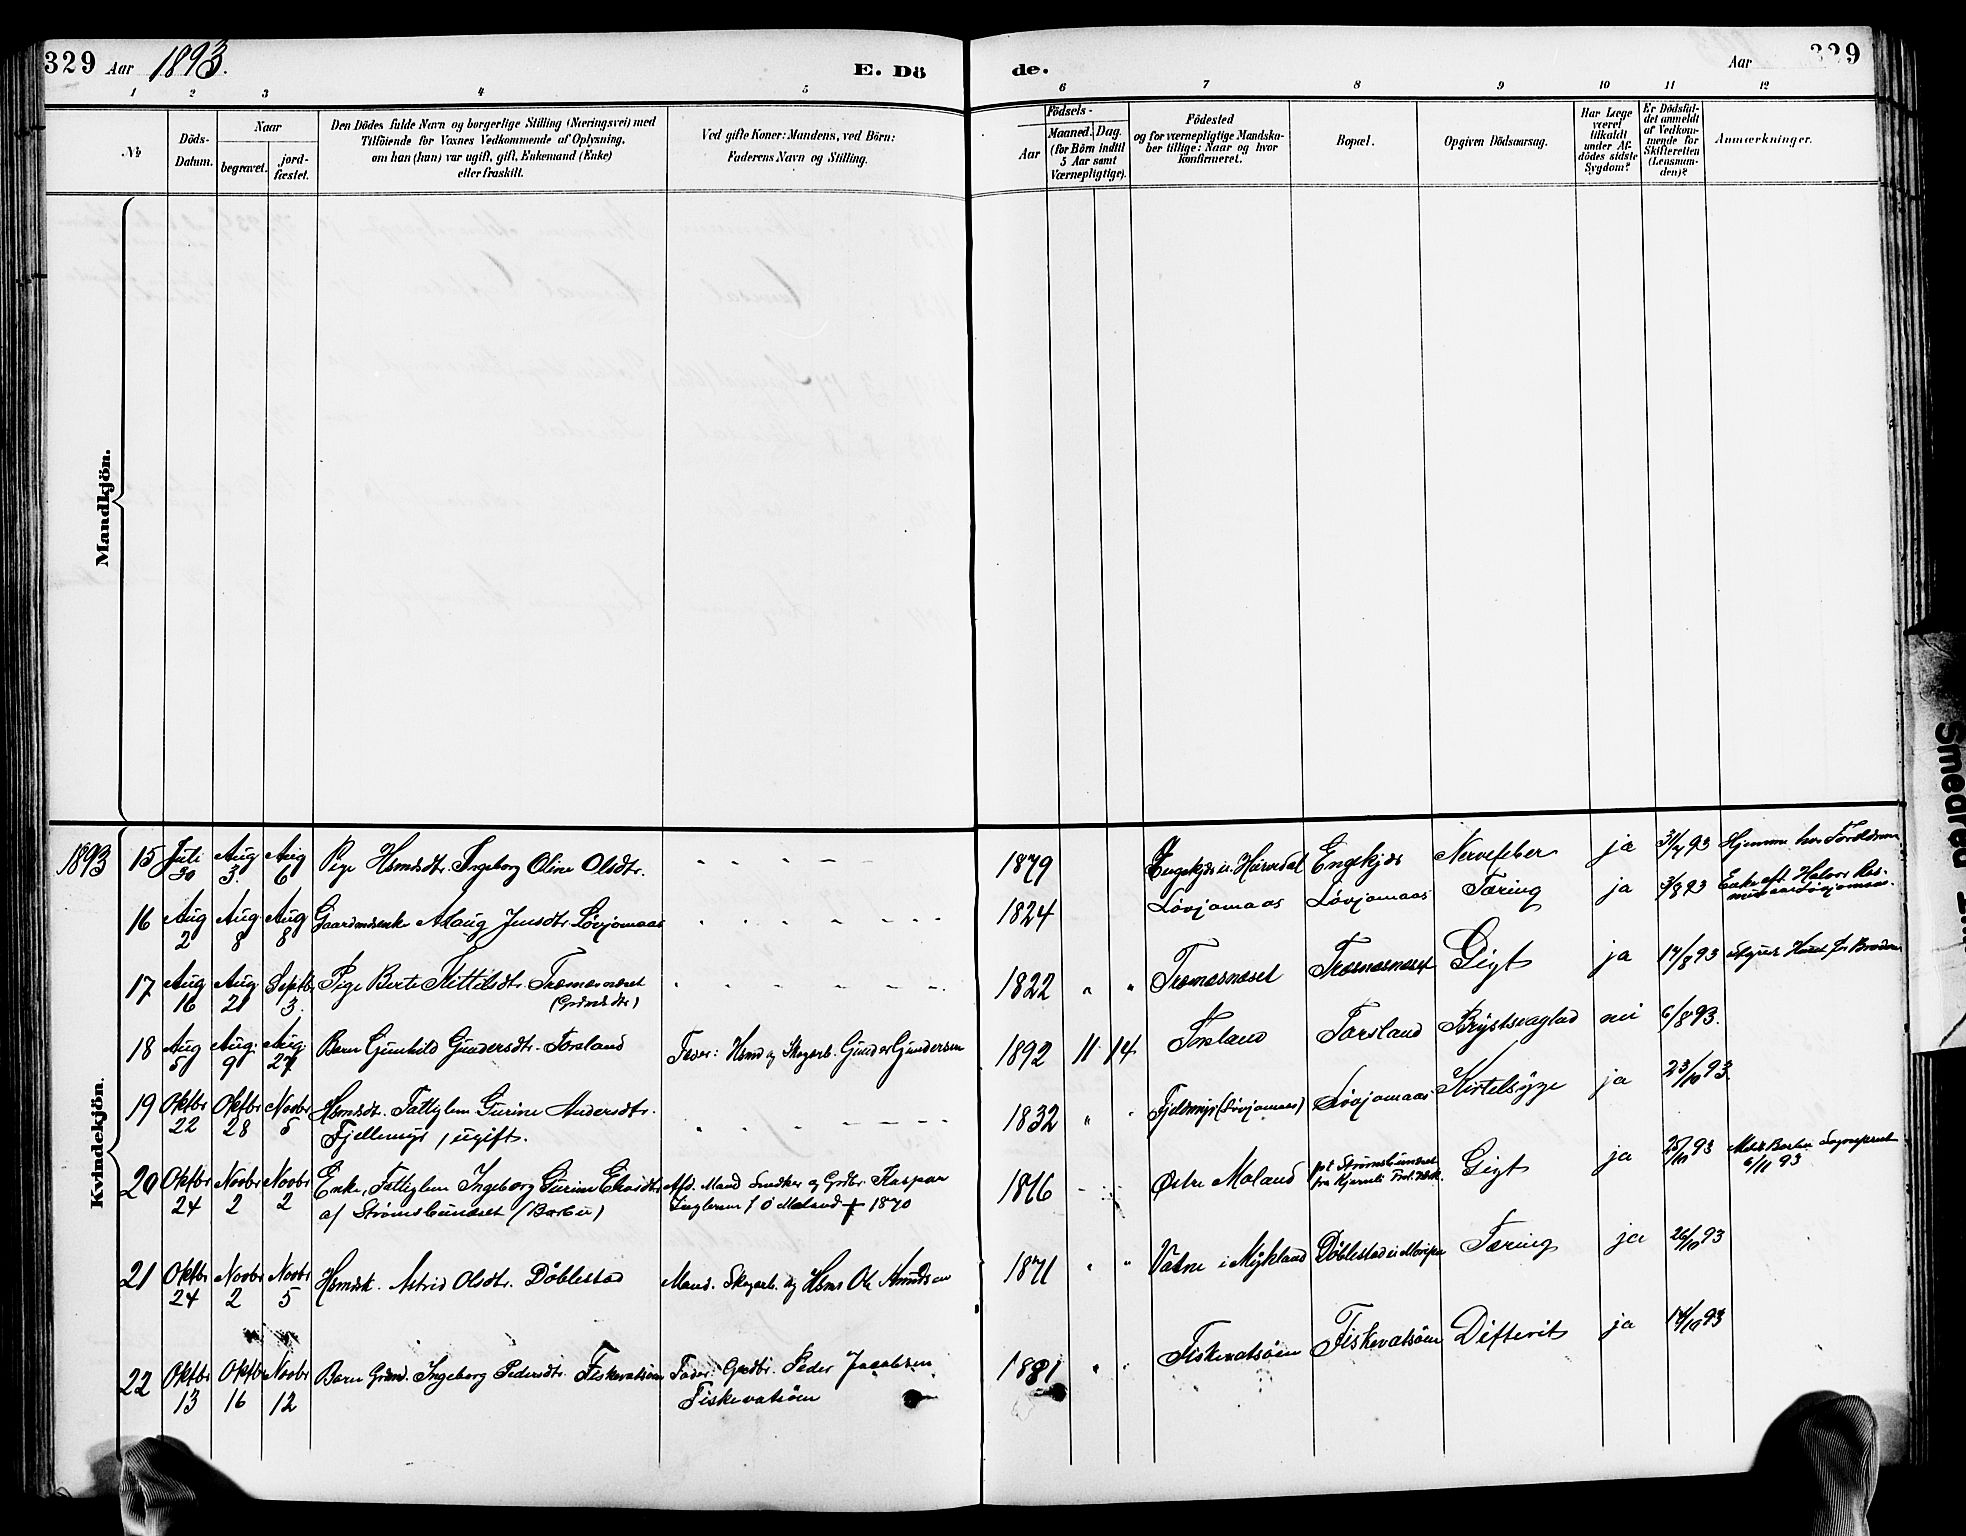 329 Aar 1893. E. Dö de. Aar 329
1 2 3 4 5 6 7 8 9 10 11 12
№
Döds-Datum.
Naar
begravet.
jord-fæstet.
Den Dödes fulde Navn og borgerlige Stilling (Næringsvei) med
Tilföiende for Voxnes Vedkommende af Oplysning,
om han (hun) var ugift, gift, Enkemand (Enke)
eller fraskilt.
Ved gifte Koner: Mandens, ved Börn:
Faderens Navn og Stilling.
Födsels-
Aar
Maaned. Dag.
(for Börn indtil
5 Aar samt
Værnepligtige).
Födested
og for værnepligtige Mandska-
ber tillige: Naar og hvor
konfirmeret.
Bopæl.
Opgiven Dödsaarsag.
Har Læge
været
tilkaldt
under Af-
dödes sidste
Sygdom?
Er Dödsfal-
det anmeldt
af Vedkom-
mende for
Skifteretten
(Lensman-
den)?
Anmærkninger.
Mandkjön.
Kvindekjön.
1893 15 Juli 30 Aug 3. Aug 6 Pige Hsmdsdtr. Ingeborg Oline Olsdtr. 1879 Engekjær i Hærerdal Engekjær Nervefeber ja 31/7 93 Hjemme hos Forældrene
16 Aug 2 Aug 8 Aug 8 Gaardmdsenke Aslaug Jensdtr. Løvjomaas 1824 Løvjomaas Løvjomaas Tæring ja 3/8 93 Enke eft. Halvor Løvjomaas.
17 Aug 16 Aug 21 Septbr 3. Pige Berte Kittilsdtr. Træmæsnæset
(Grdmdsdtr) 1822 " " Træmæsnæset Træmæsnæset Gigt ja 17/8 93
18 Aug 5 Aug. 9 Aug 27 Barn Gunhild Gundersdtr. Forsland Fader: Hsmd og Skogarb. Gunder Gundersen 1892 11 14 Forsland Forsland Brystsvaghed nei 6/8 93.
19 Oktbr 22 Oktbr 28 Novbr 5 Hsmdsdtr. Fattiglem Gurine Andersdtr.
Fjellemyr, ugift. 1832 " " Fjellemyr (Løvjomaas) Løvjomaas Kirtelsyge ja 23/10 93.
20 Oktbr 24 Novbr 2 Novbr 2 Enke, Fattiglem Ingeborg Gurine
af Strømsbunæset (Barbu) Afd. Mand Snedker og Grdbr. Kaspar
f. Ø Moland † 1870 1816 Østre Moland pt Strømsbunæset Gigt ja 25/10 93 6/11 93
21 Oktbr 24 Novbr 2 Novbr 5 Hsmdsk. Astrid Olsdtr. Døblestad Mand. Skogarb. og Hsmd Ole Amundsen 1871 " " Vatne i Mykland Døblestad i Tæring ja 26/10 93
22 Oktbr 13 Oktbr 16 Novbr 12 Barn Grdmd. Ingeborg Pedersdtr. Fiskevatsøen Fader: Grdbr. Peder Jacobsen
Fiskevatsøen 1881 " " Fiskevatsøen Fiskevatsøen Difterit ja 14/10 93
Smeared Ink